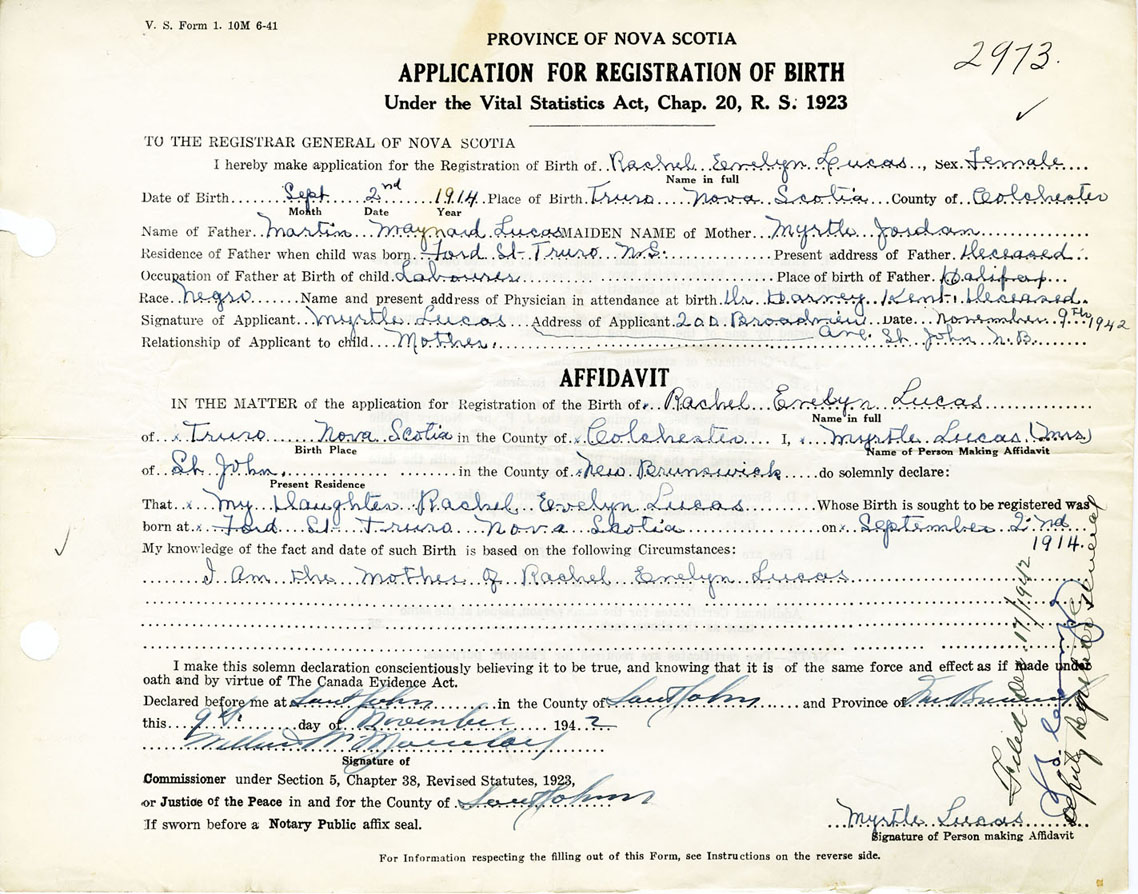 V. S. Form 1. 10M 6-41
PROVINCE OF NOVA SCOTIA
2973.
APPLICATION FOR REGISTRATION OF BIRTH
Under the Vital Statistics Act, Chap. 20, R. S. 1923
TO THE REGISTRAR GENERAL OF NOVA SCOTIA
I hereby make application for the Registration of Birth of Rachel Evelyn Lucas, sex Female
Name in full
Date of Birth Sept 2nd 1914 Place of Birth Truro Nova Scotia County of Colchester
Month Date Year
Name of Father Martin Maynard Lucas MAIDEN NAME of Mother Myrtle Jordan
Residence of Father when child was born Ford St. Truro N.S. Present address of Father Deceased
Occupation of Father at Birth of child Labourer Place of birth of Father Halifax
Race Negro Name and present address of Physician in attendance at birth Dr. Harvey Kent. Deceased.
Signature of Applicant Myrtle Lucas Address of Applicant 200 Broadview Date November 9th 1942
Relationship of Applicant to child Mother. Ave. St. John N.B.
AFFIDAVIT
IN THE MATTER of the application for Registration of the Birth of Rachel Evelyn Lucas
Name in full
of x Truro Nova Scotia in the County of x Colchester I, x Myrtle Lucas (Mrs)
Birth Place Name of Person Making Affidavit
of St. John. in the County of x New Brunswick do solemnly declare:
Present Residence
That x My Daughter Rachel Evelyn Lucas Whose Birth is sought to be registered was
born at x Ford St. Truro Nova Scotia on x September 2nd
1914.
My knowledge of the fact and date of such Birth is based on the following Circumstances:
I Am the Mother of Rachel Evelyn Lucas
I make this solemn declaration conscientiously believing it to be true, and knowing that it is of the same force and effect as if made under
oath and by virtue of The Canada Evidence Act.
Declared before me at Saint John in the County of Saint John and Province of New Brunswick
this 9th day of November 1942
Signature of
Commissioner under Section 5, Chapter 38, Revised Statutes, 1923,
or Justice of the Peace in and for the County of Saint John
If sworn before a Notary Public affix seal.
Myrtle Lucas
Signature of Person making Affidavit
Filed Dec. 17/1942
Deputy Registrar General
For Information respecting the filling out of this Form, see Instructions on the reverse side.